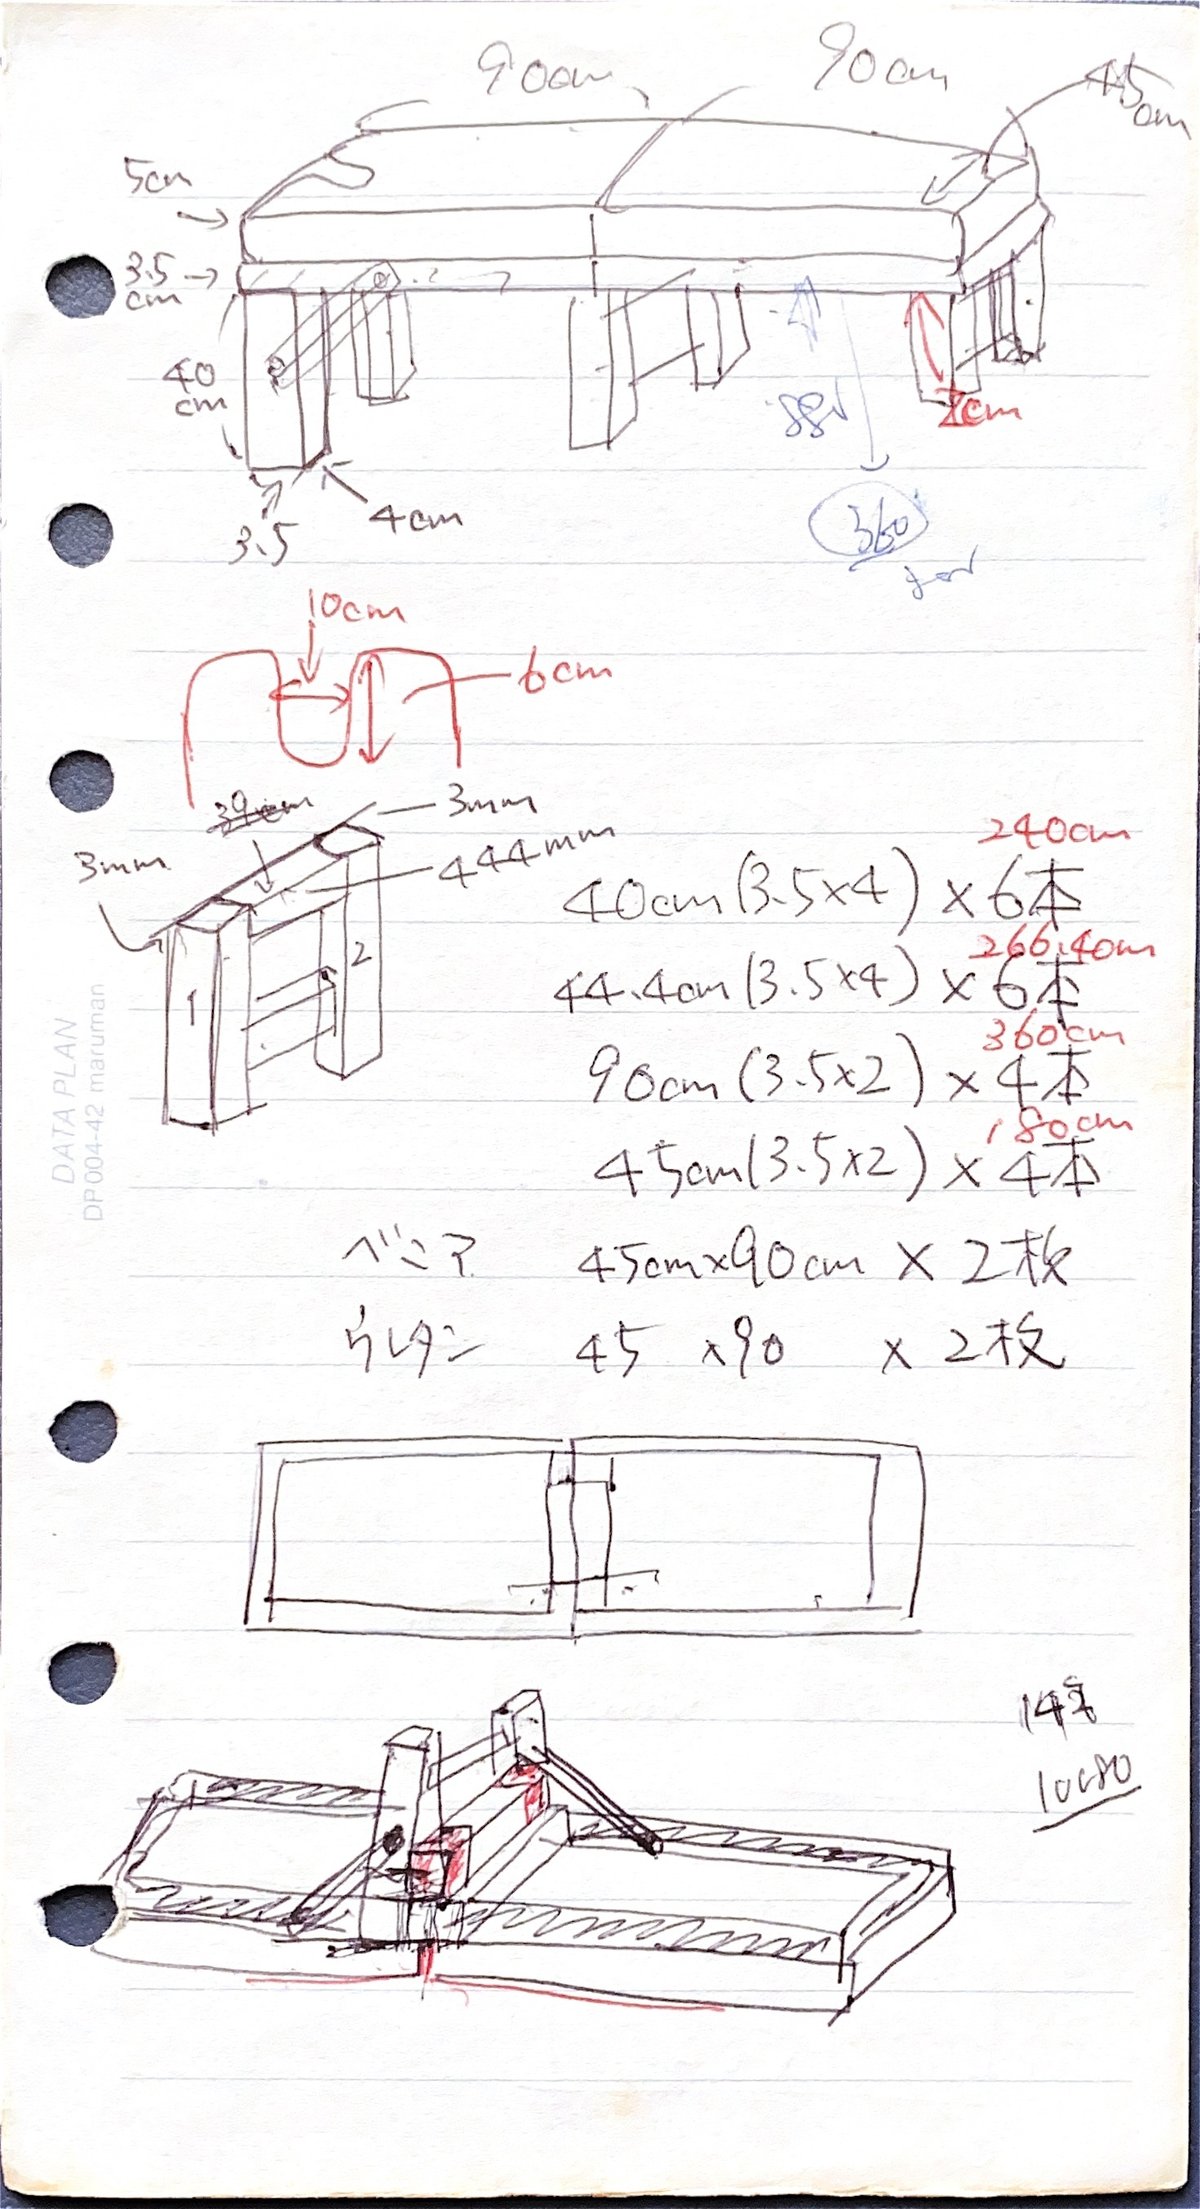 90cm 90cm
45cm
5cm
3.5cm
40cm
3.5
4cm
7cm
360
10cm
6cm
39cm
3mm
3mm
444mm
1
2
240cm
40cm(3.5×4)×6本
266.40cm
44.4cm(3.5×4)×6本
360cm
90cm(3.5×2)×4本
180cm
45cm(3.5×2)×4本
ベニア 45cm×90cm×2枚
ウレタン 45×90×2枚
DATA PLAN
DP004-42 maruman